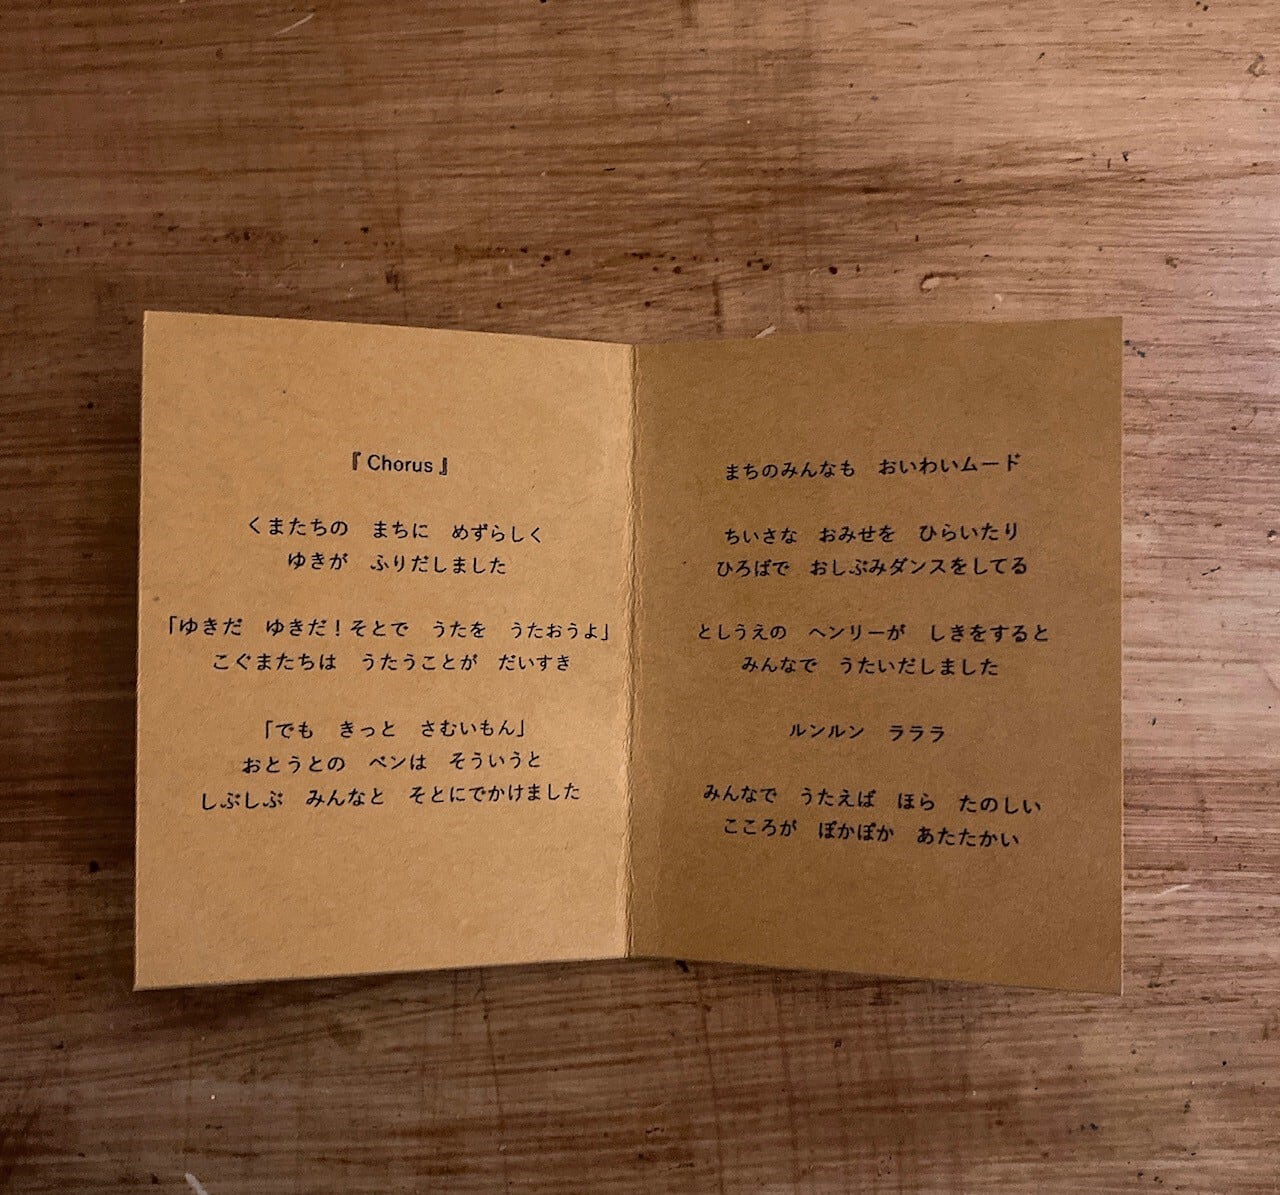 『 Chorus 』
くまたちの　まちに　めずらしく
ゆきが　ふりだしました
「ゆきだ　ゆきだ！そとで　うたを　うたおうよ」
こぐまたちは　うたうことが　だいすき
「でも　きっと　さむいもん」
おとうとの　ベンは　そういうと
しぶしぶ　みんなと　そとにでかけました
まちのみんなも　おいわいムード
ちいさな　おみせを　ひらいたり
ひろばで　おしぶみダンスをしてる
としうえの　ヘンリーが　しきをすると
みんなで　うたいだしました
ルンルン　ラララ
みんなで　うたえば　ほら　たのしい
こころが　ぽかぽか　あたたかい